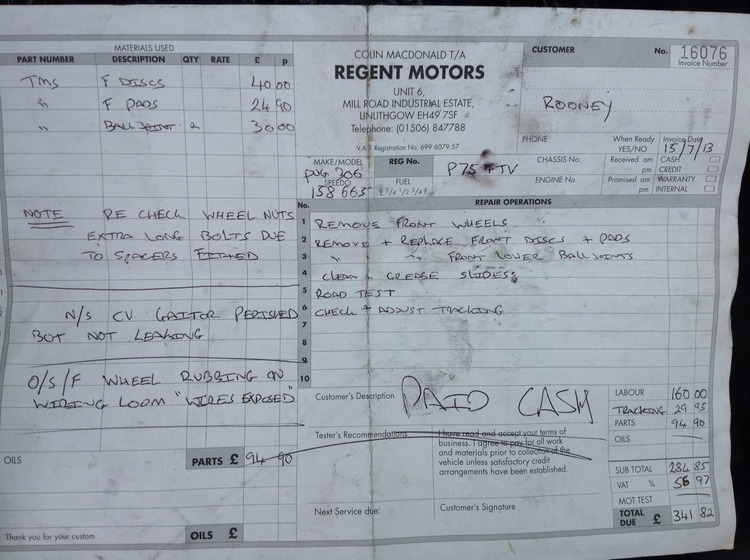 MATERIALS USED
PART NUMBER DESCRIPTION QTY RATE £ P
TMS F DISCS 40 00
" F PADS 24 90
" BALL JOINT 2 30 00
NOTE RE CHECK WHEEL NUTS
EXTRA LONG BOLTS DUE
TO SPACERS FITTED
N/S CV GAITOR PERISHED
BUT NOT LEAKING
O/S/F WHEEL RUBBING ON
WIRING LOOM "WIRES EXPOSED"
OILS PARTS £ 94 90
Thank you for your custom OILS £
COLIN MACDONALD T/A
REGENT MOTORS
UNIT 6,
MILL ROAD INDUSTRIAL ESTATE,
LINLITHGOW EH49 7SF
Telephone: (01506) 847788
V.A.T. Registration No. 699 6079 57
CUSTOMER No. 16076
Invoice Number
ROONEY
PHONE When Ready YES/NO Invoice Date 15/7/13
MAKE/MODEL PUG 306
SPEEDO 158 665
REG No. P75 TV
FUEL E 1/4 1/2 3/4 F
CHASSIS No.
ENGINE No.
Received am pm
Promised am pm
CASH
CREDIT
WARRANTY
INTERNAL
No. REPAIR OPERATIONS
1 REMOVE FRONT WHEELS
2 REMOVE + REPLACE FRONT DISCS + PADS
3 " " FRONT LOWER BALL JOINTS
4 CLEAN & GREASE SLIDES
5 ROAD TEST
6 CHECK + ADJUST TRACKING
7
8
9
10
Customer's Description PAID CASH
Tester's Recommendations
I have read and accept your terms of
business. I agree to pay for all work
and materials prior to collection of the
vehicle unless satisfactory credit
arrangements have been established.
Next Service due: Customer's Signature
LABOUR 160 00
TRACKING 29 95
PARTS 94 90
OILS
SUB TOTAL 284 85
VAT % 56 97
MOT TEST
TOTAL DUE £ 341 82